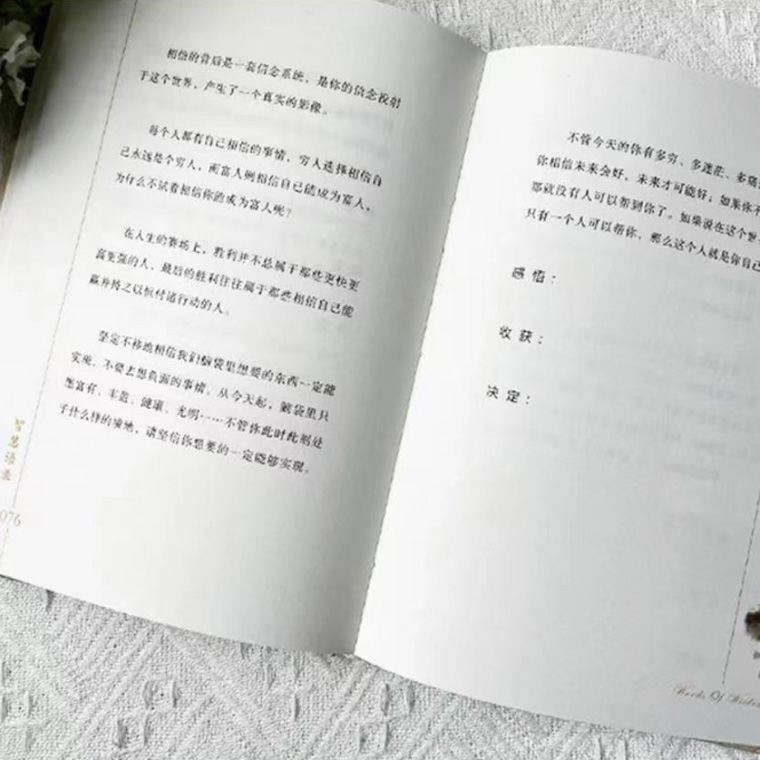 相信的背后是一套信念系统,是你的信念投射
于这个世界,产生了一个真实的影像。
每个人都有自己相信的事情,穷人选择相信自
己永远是个穷人,而富人则相信自己能成为富人,
为什么不试着相信你能成为富人呢?
在人生的赛场上,胜利并不总属于那些更快更
高更强的人,最后的胜利往往属于那些相信自己能
赢并持之以恒付诸行动的人。
坚定不移地相信我们脑袋里想要的东西一定能
实现,不要去想负面的事情。从今天起,脑袋里只
想富有、丰盛、健康、光明……不管你此时此刻处
于什么样的境地,请坚信你想要的一定能够实现。
智慧语录
076
不管今天的你有多穷、多迷茫、多痛
你相信未来会好,未来才可能好;如果你不
那就没有人可以帮到你了。如果说在这个世
只有一个人可以帮你,那么这个人就是你自己
感悟:
收获:
决定:
Words Of Wisdom